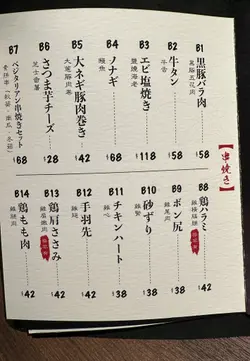 【串焼き】
B1 黒豚バラ肉 $58
黑豚五花肉
B2 牛タン $58
牛舌
B3 エビ塩焼き $68
鹽燒海老
B4 ノナギ $68
鰻魚
B5 大ネギ豚肉巻き $42
大蔥豚肉卷
B6 さつま芋チーズ $28
芝士番薯
B7 ベジタリアン串焼きセット $68
B8 鶏ハラミ $42
B9 ボン尻 $38
雞尾肉
B10 砂ずり $38
雞腎
B11 チキンハート $38
雞心
B12 手羽先 $42
雞翼
B13 鶏肩ささみ $42
B14 鶏もも肉 $42
雞腿肉